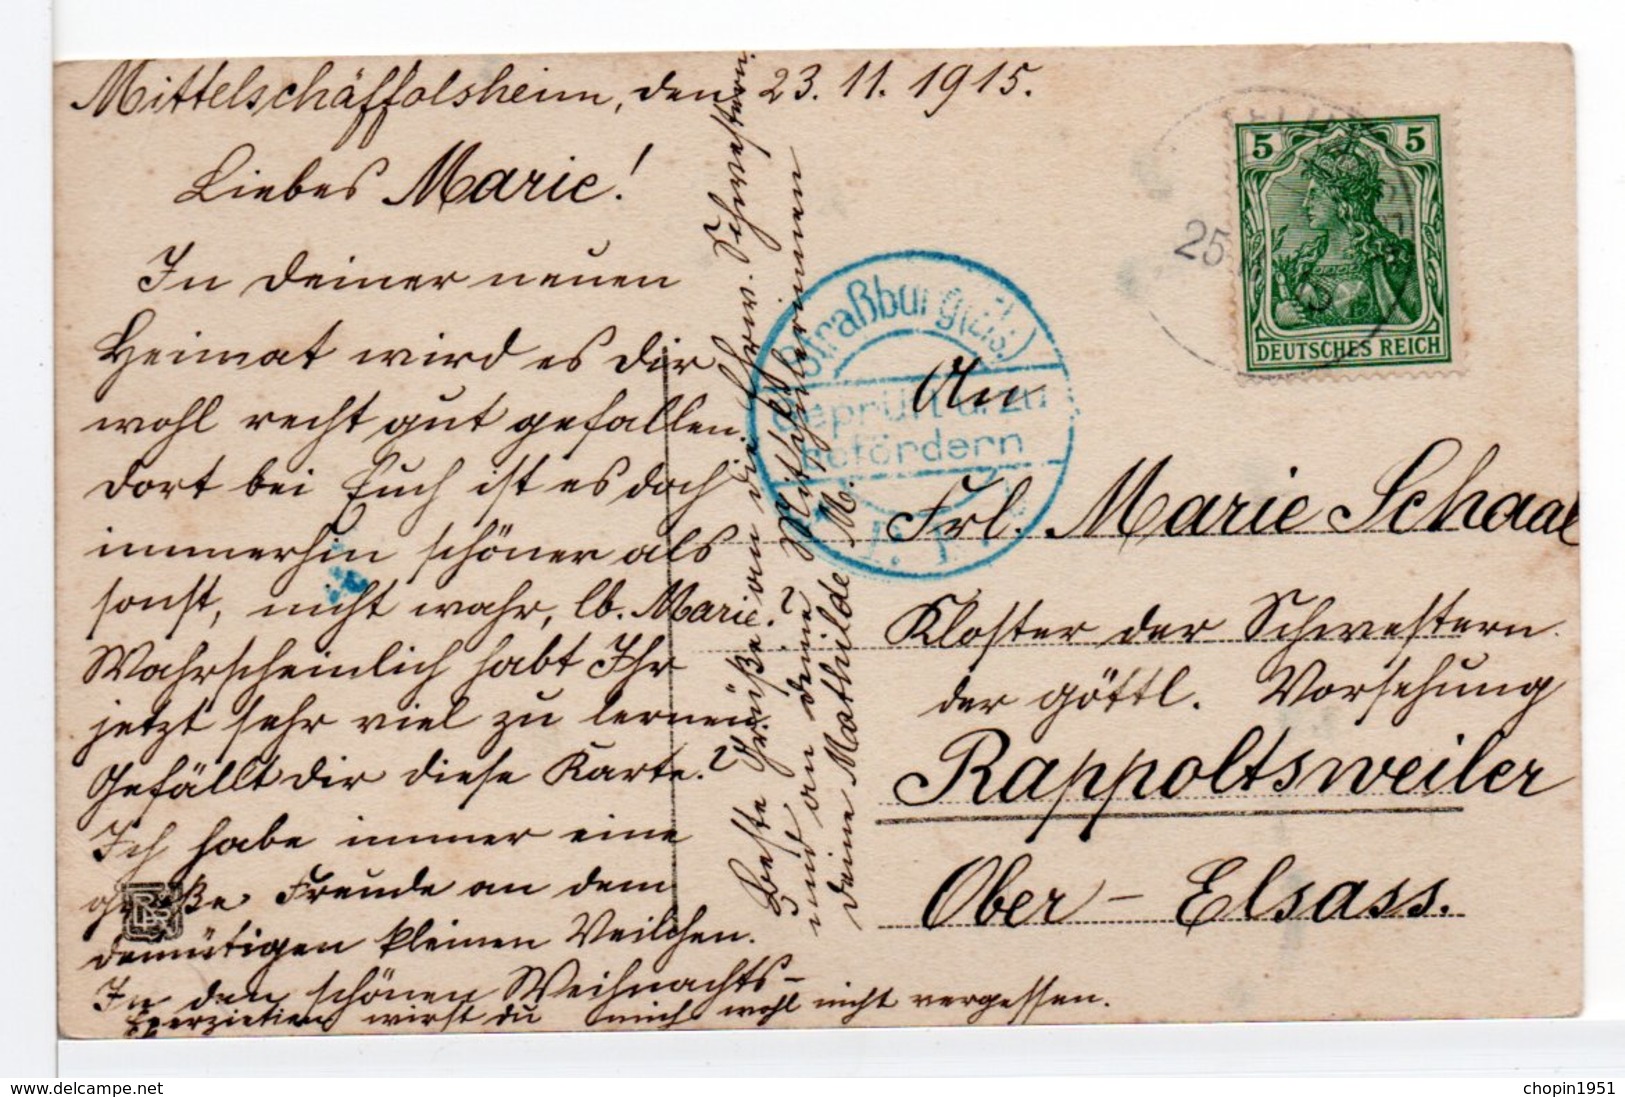 Mittelschäffolsheim, den 23. 11. 1915.
Liebes Marie!
In deiner neuen
Heimat wird es dir
wohl recht gut gefallen.
Dort bei Euch ist es doch
immerhin schöner als
sonst, nicht wahr, lb. Marie?
Wahrscheinlich habt Ihr
jetzt sehr viel zu lernen.
Gefällt dir diese Karte?
Ich habe immer eine
große Freude an dem
demütigen kleinen Veilchen.
In den schönen Weihnachts-
Exerzitien wirst du mich wohl nicht vergessen.
Beste Grüße an die Ehrw. Schwestern
und an deine Mitschülerinnen
deine Mathilde M.
Straßburg (Els.)
Geprüft u. zu
befördern
5 5
DEUTSCHES REICH
25
An
Frl. Marie Schaal
Kloster der Schwestern
der göttl. Vorsehung
Rappoltsweiler
Ober-Elsass.
delcampe.net
chopin1951